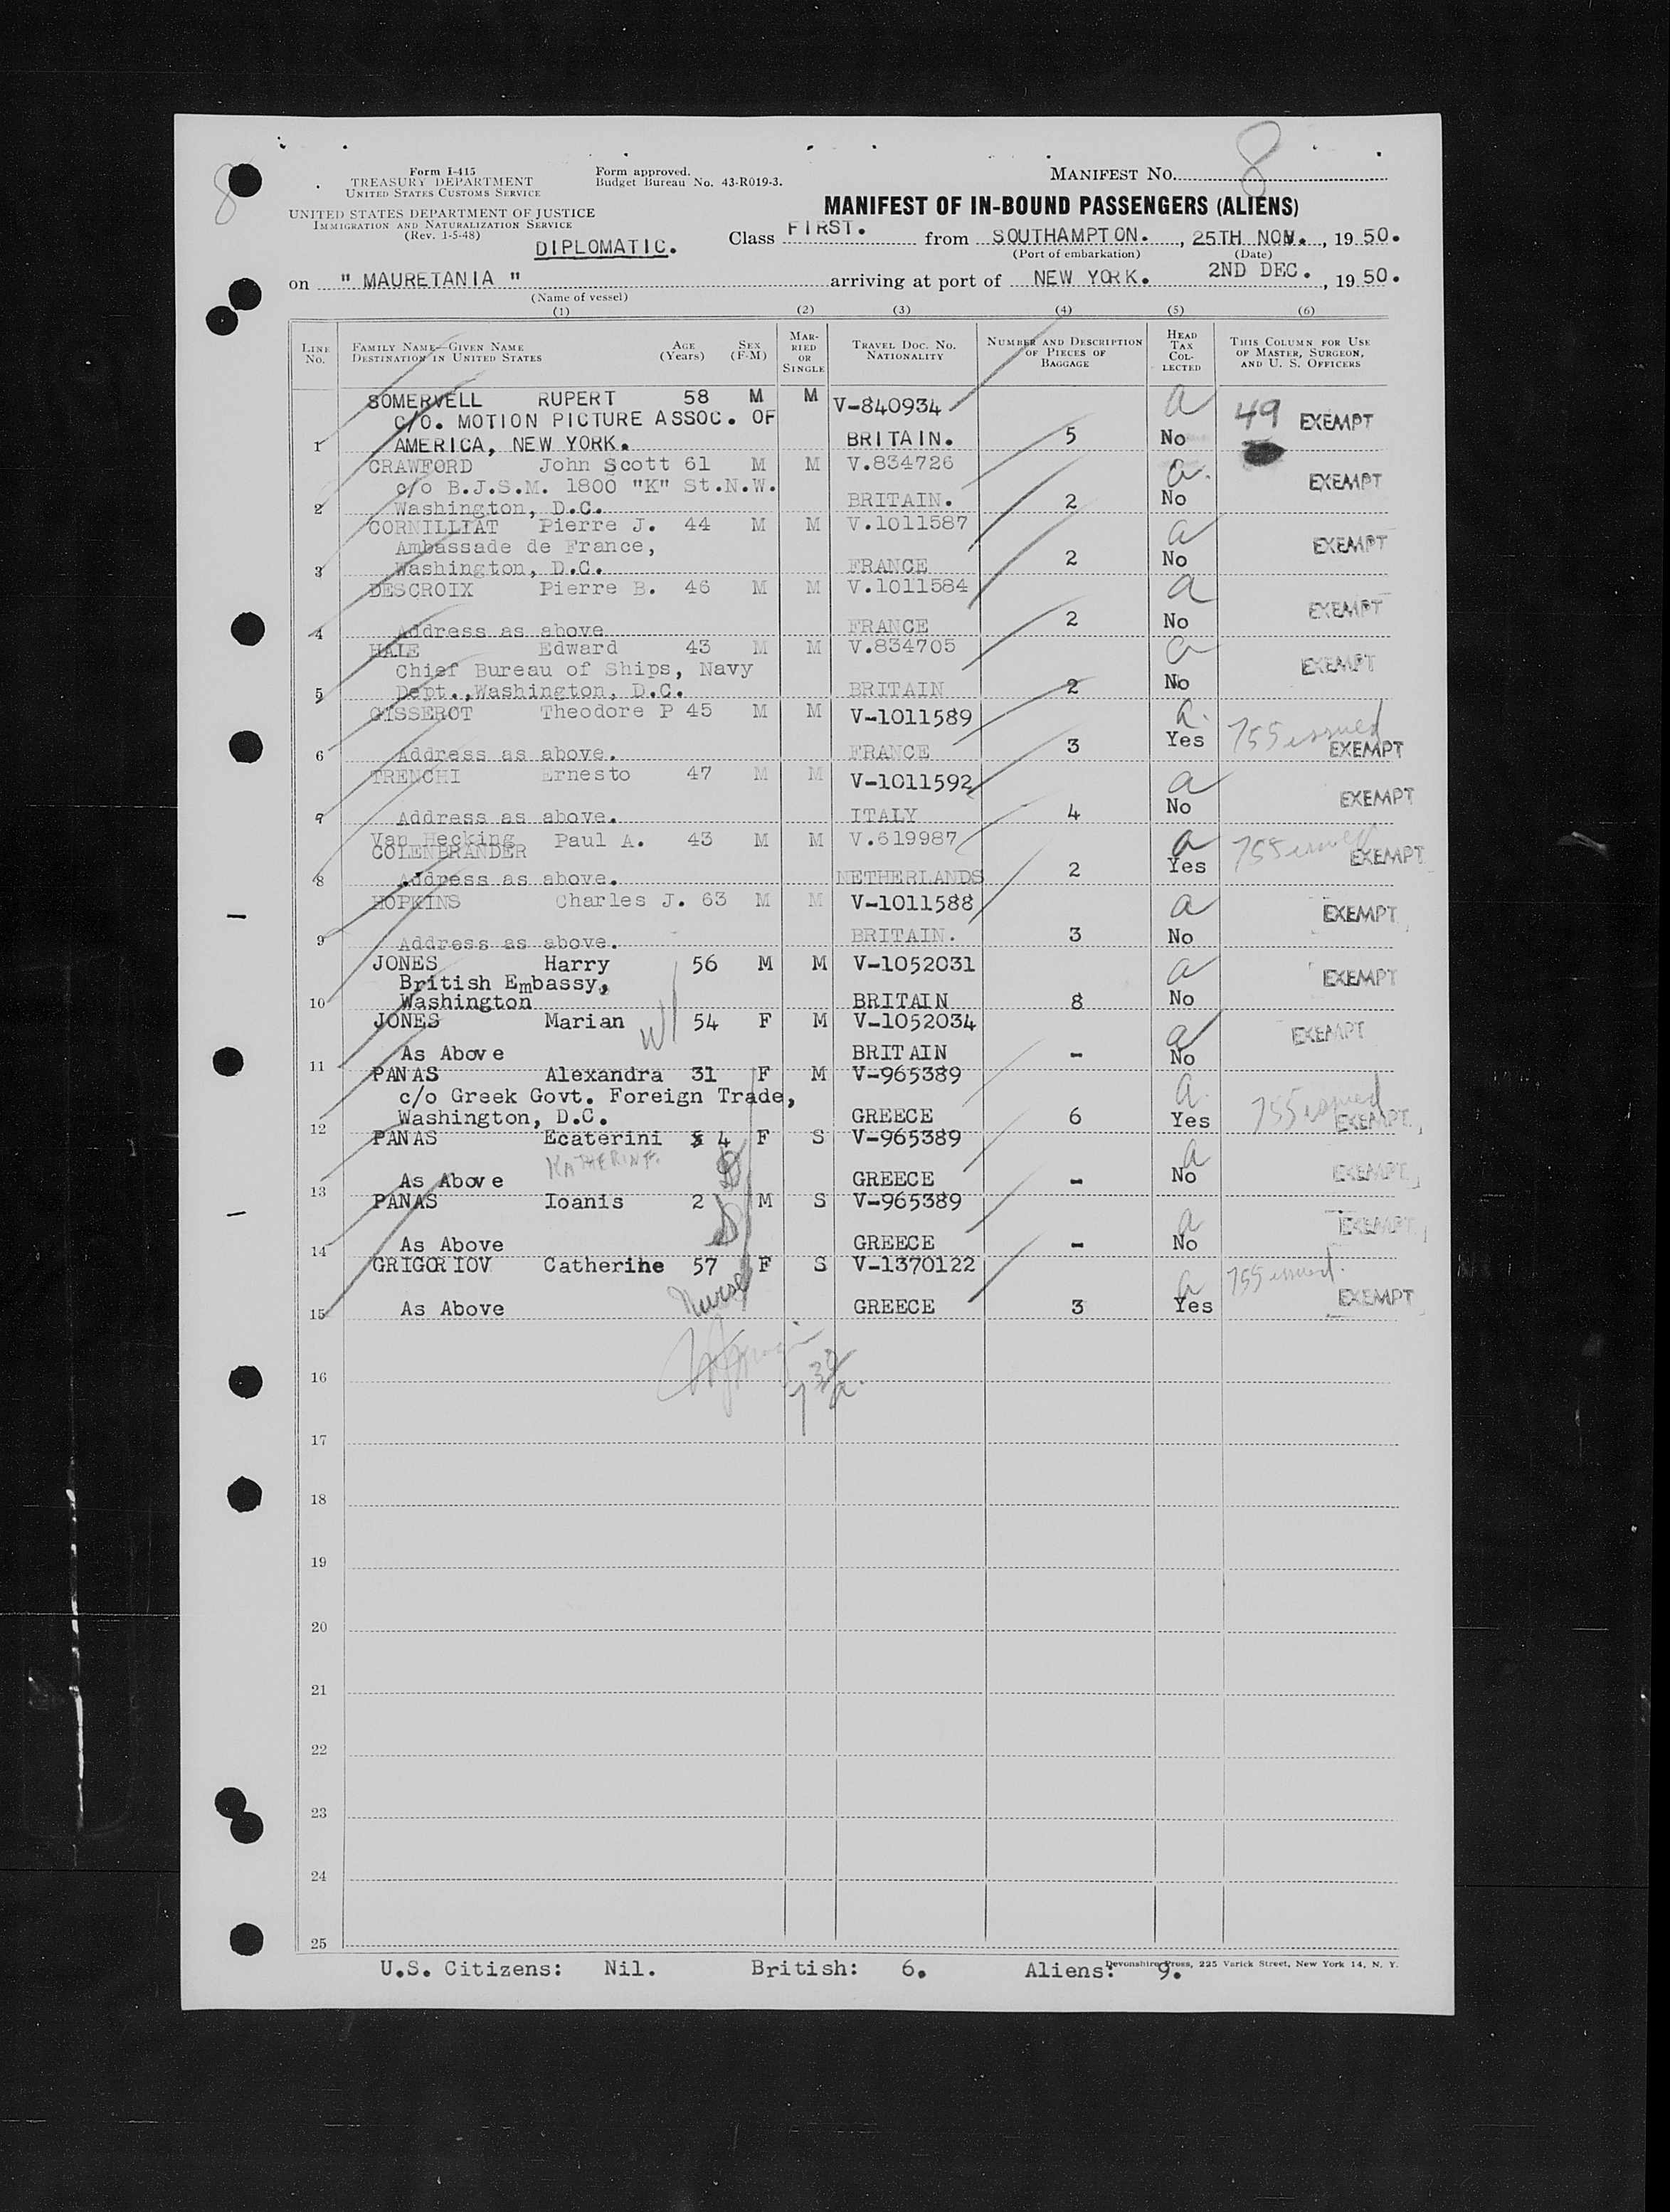 8
8
Form I-415
TREASURY DEPARTMENT
UNITED STATES CUSTOMS SERVICE
Form approved.
Budget Bureau No. 43-R019-3.
MANIFEST NO.
UNITED STATES DEPARTMENT OF JUSTICE
IMMIGRATION AND NATURALIZATION SERVICE
(Rev. 1-5-48)
MANIFEST OF IN-BOUND PASSENGERS (ALIENS)
DIPLOMATIC. Class FIRST. from SOUTHAMPTON., 25TH NOV., 19 50.
(Port of embarkation) (Date)
on " MAURETANIA " arriving at port of NEW YORK. 2ND DEC., 19 50.
(Name of vessel)
(1) (2) (3) (4) (5) (6)
LINE No. FAMILY NAME—GIVEN NAME DESTINATION IN UNITED STATES AGE (Years) SEX (F-M) MARRIED OR SINGLE TRAVEL DOC. NO. NATIONALITY NUMBER AND DESCRIPTION OF PIECES OF BAGGAGE HEAD TAX COLLECTED THIS COLUMN FOR USE OF MASTER, SURGEON, AND U. S. OFFICERS
SOMERVELL RUPERT 58 M M V-840934 a 49 EXEMPT
C/O. MOTION PICTURE ASSOC. OF
1 AMERICA, NEW YORK. BRITAIN. 5 No
CRAWFORD John Scott 61 M M V.834726 a. EXEMPT
c/o B.J.S.M. 1800 "K" St.N.W.
2 Washington, D.C. BRITAIN. 2 No
CORNILLIAT Pierre J. 44 M M V.1011587 a EXEMPT
Ambassade de France,
3 Washington, D.C. FRANCE 2 No
DESCROIX Pierre B. 46 M M V.1011584 a EXEMPT
4 Address as above FRANCE 2 No
HALE Edward 43 M M V.834705 a EXEMPT
Chief Bureau of Ships, Navy
5 Dept.,Washington, D.C. BRITAIN 2 No
GISSEROT Theodore P 45 M M V-1011589 a. 755 issued
6 Address as above. FRANCE 3 Yes EXEMPT
TRENCHI Ernesto 47 M M V-1011592 a EXEMPT
7 Address as above. ITALY 4 No
Van Hecking Paul A. 43 M M V.619987 a 755 issued
COLENBRANDER EXEMPT
8 Address as above. NETHERLANDS 2 Yes
HOPKINS Charles J. 63 M M V-1011588 a EXEMPT
9 Address as above. BRITAIN. 3 No
JONES Harry 56 M M V-1052031 a EXEMPT
British Embassy,
10 Washington BRITAIN 8 No
JONES Marian W 54 F M V-1052034 a EXEMPT
11 As Above BRITAIN - No
PANAS Alexandra 31 F M V-965389 a. 755 issued
c/o Greek Govt. Foreign Trade,
12 Washington, D.C. GREECE 6 Yes EXEMPT
PANAS Ecaterini 4 F S V-965389 a
KATHERINE
13 As Above GREECE - No EXEMPT
PANAS Ioanis 2 M S V-965389 a EXEMPT
14 As Above GREECE - No
GRIGORIOV Catherine 57 F S V-1370122 a 755 issued.
Nurse
15 As Above GREECE 3 Yes EXEMPT
16
17
18
19
20
21
22
23
24
25
Devonshire Press, 225 Varick Street, New York 14, N. Y.
U.S. Citizens: Nil. British: 6. Aliens: 9.